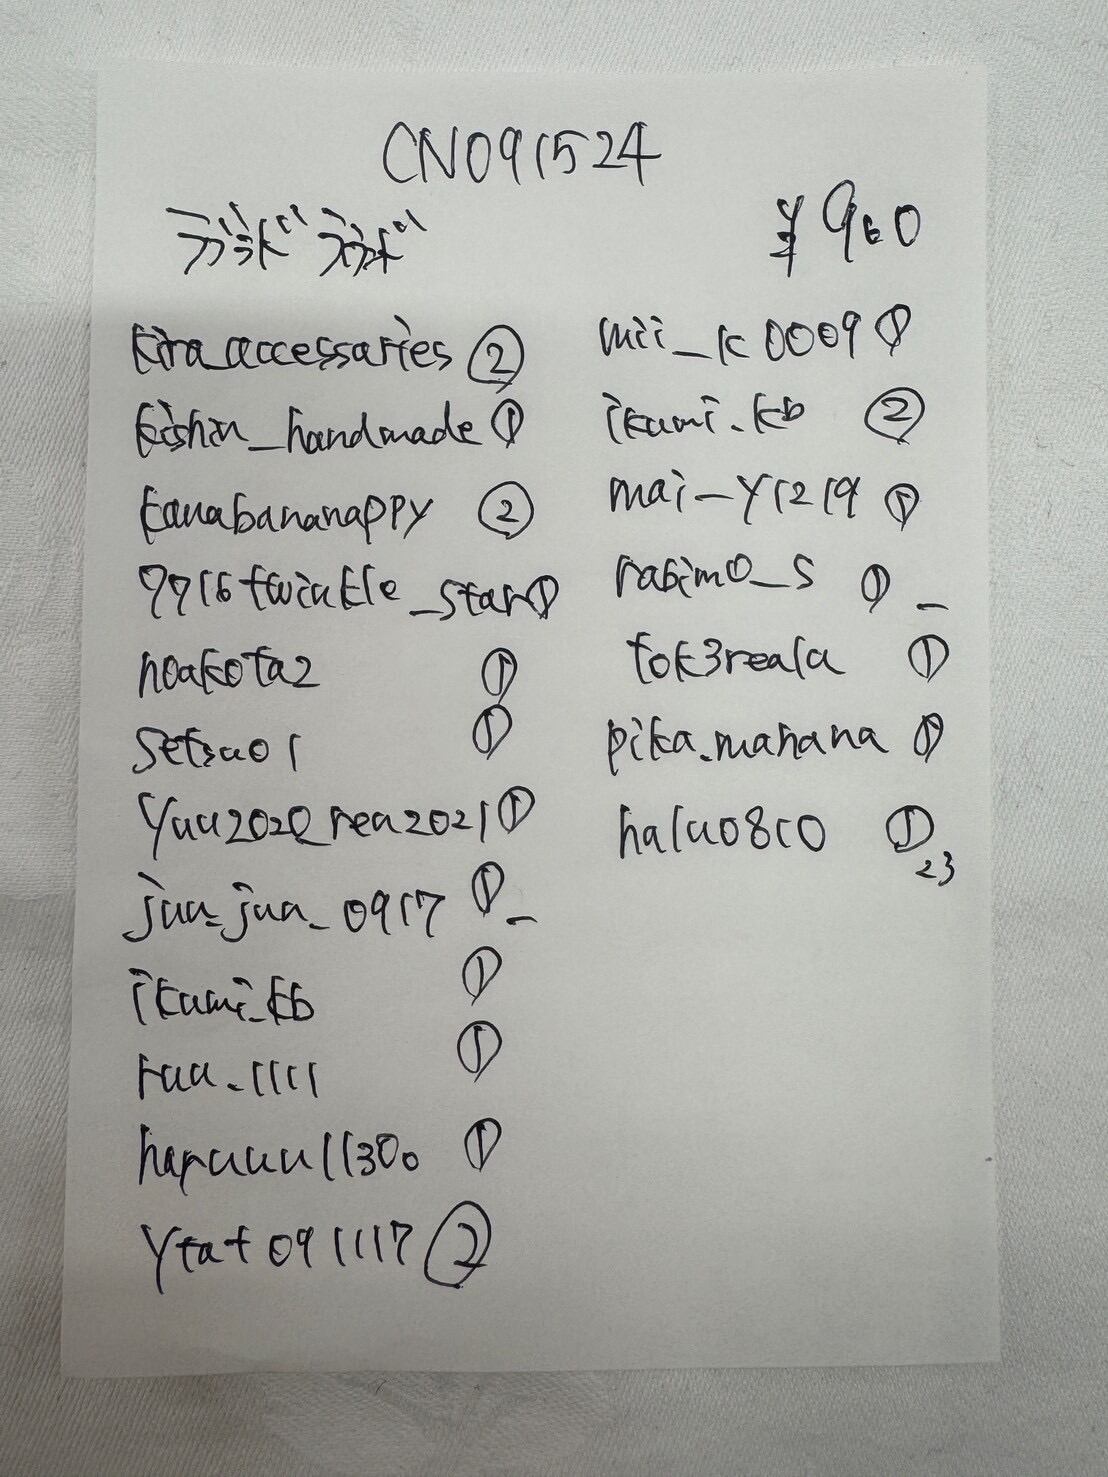 CN091524
¥960
kira_accessaries ②
kishin_handmade ①
kanabananappy ②
9916twinkle_star ①
noakota2 ①
setsuo1 ①
yuu2020_reu2021 ①
juu_juu_0917 ①
ikumi_kb ①
ruu_1111 ①
haruuu1130 ①
ytat091117 ②
mii_k0009 ①
ikumi.kb ②
mai_y1219 ①
rabimo_s ①
tok3reala ①
pika.manana ①
halu0810 ①
23